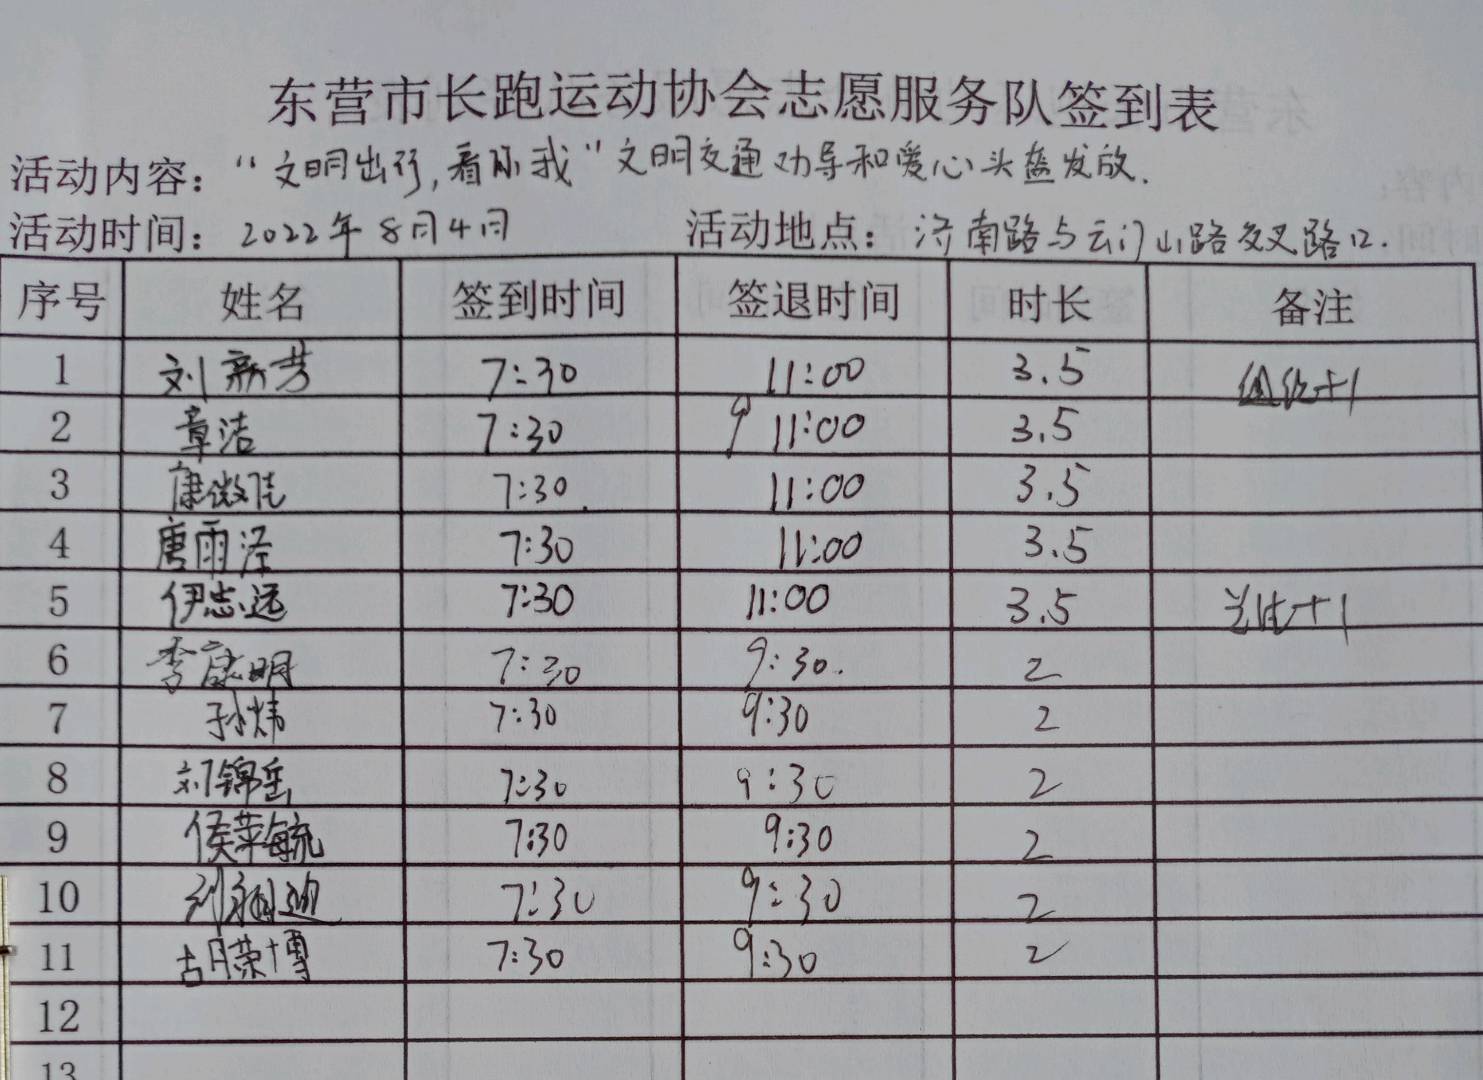 东营市长跑运动协会志愿服务队签到表
活动内容："文明出行,看你我"文明交通劝导和爱心头盔发放.
活动时间：2022年8月4日 活动地点：济南路与云门山路交叉路口.
序号 姓名 签到时间 签退时间 时长 备注
1 刘新芳 7:30 11:00 3.5 组织+1
2 章洁 7:30 9 11:00 3.5
3 康 7:30 11:00 3.5
4 唐雨泽 7:30 11:00 3.5
5 伊志远 7:30 11:00 3.5 +1
6 李康明 7:30 9:30. 2
7 孙炜 7:30 9:30 2
8 刘锦岳 7:30 9:30 2
9 侯莘毓 7:30 9:30 2
10 刘 7:30 9:30 2
11 胡荣博 7:30 9:30 2
12
13